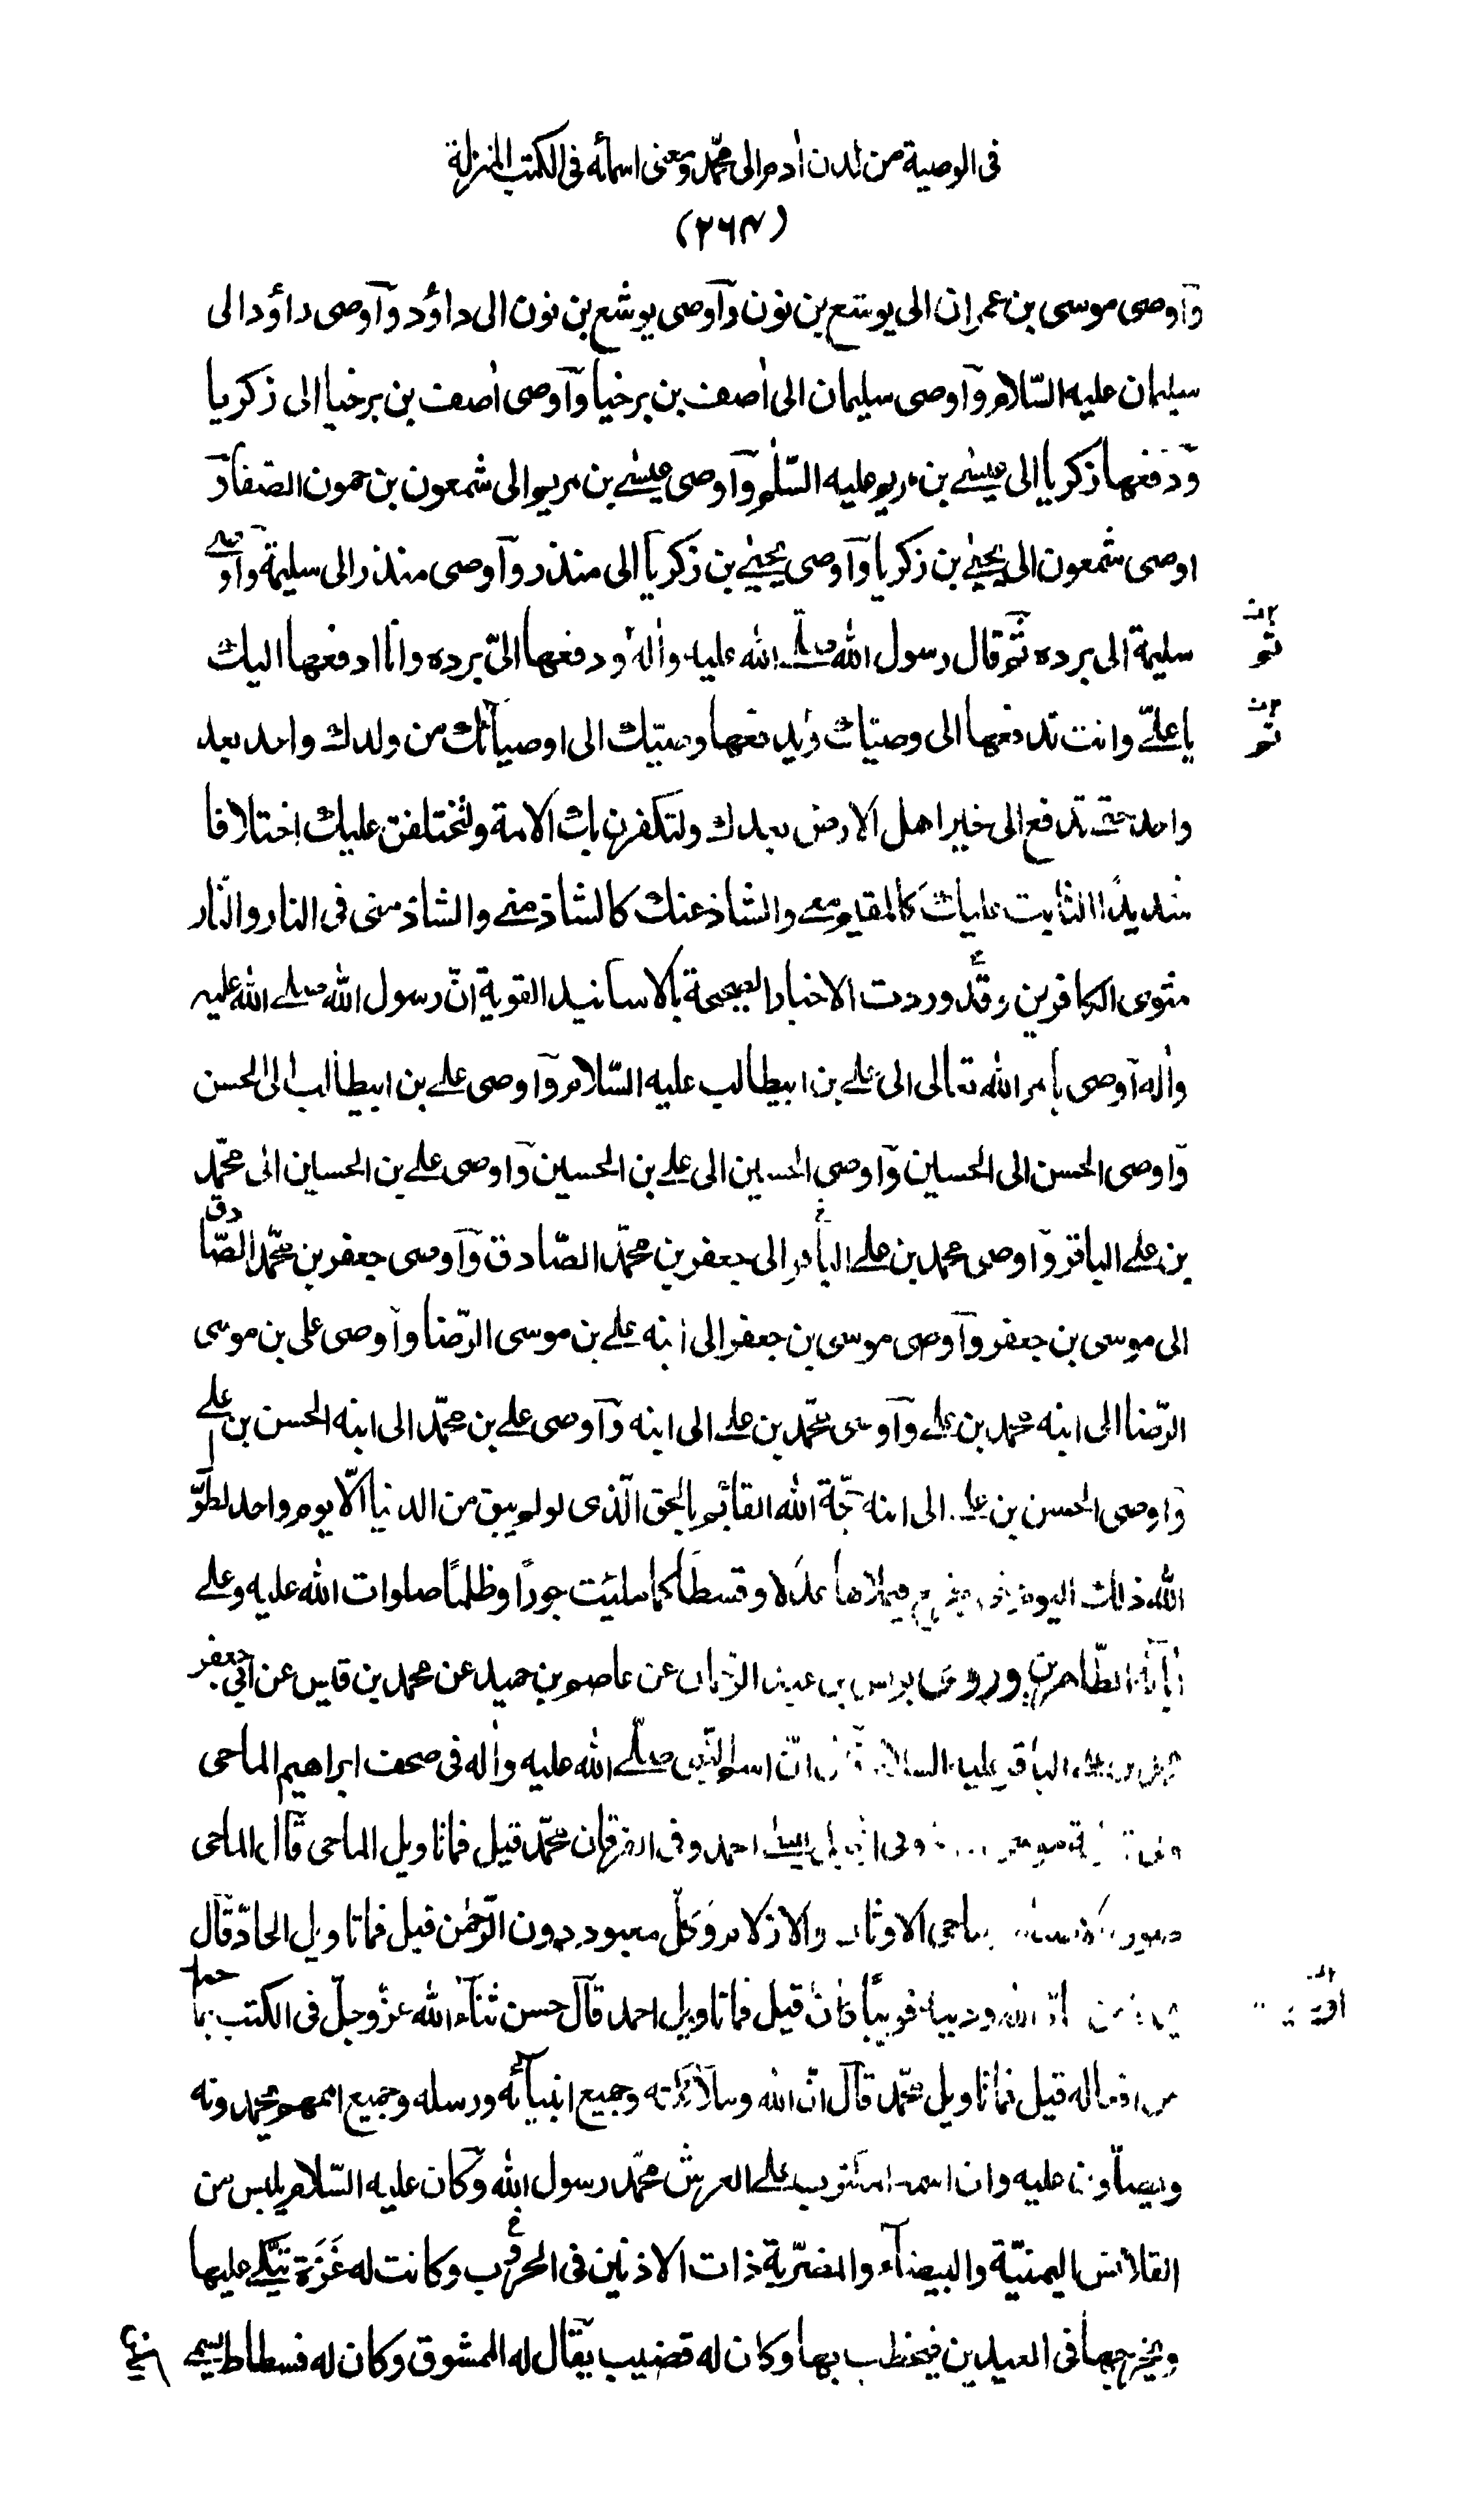 فى الوصية من لدن اٰدم الى محمّد و معنى اسمائه فى الكتب المنزلة
(٢٦٤)
وآوصى موسى بن عمران الى يوشع بن نون وآوصى يوشع بن نون الى داؤد وآوصى داؤد الى
سليمان عليه السّلام وآوصى سليمان الى اٰصف بن برخيا وآوصى اٰصف بن برخيا الى زكريا
وَدَفعها زكريا الى عيسٰے بن مريم عليه السّلٰم وآوصى عيسٰے بن مريم الى شمعون بن حمون الصفا وَ
اوصى شمعون الى يحيٰے بن زكريا وآوصى يحيٰے بن زكريا الى منذر وآوصى منذر الى سليمة وآوصے
سليمة الى برده ثَم قال رسول الله صلے الله عليه واٰله ودفعها الىّ برده وانا ادفعها اليك
ثم
يا علىّ وانت تدفعها الى وصيّك ويدفعها وصيّك الى اوصيآئك من ولدك واحد بعد
ثم
واحد حتے تدفع الى خير اهل الارض بعدك ولتكفرن بك الامة ولتختلفن عليك اختلافا
شديدًا الثابت عليك كالمقيم معے والشاذ عنك كالشاذ منے والشاذ منى فى النار والنّار
مثوى الكافرين وقَد وردت الاخبار الصحيحة بالاسانيد القوية انّ رسول الله صلے الله عليه
واٰله آوصى بامر الله تعالى الى علے بن ابيطالب عليه السّلام وآوصى علے بن ابيطالب الى الحسن
وَاوصى الحسن الى الحسين وَاوصى الحسين الى علے بن الحسين وَاوصى علے بن الحسين الى محمّد
بن علے الباقر وَاوصى محمد بن علے الباقر الى جعفر بن محمّد الصّادق وآوصى جعفر بن محمّد الصّادق
الى موسى بن جعفر وآوصى موسى بن جعفر الى ابنه علے بن موسى الرّضا وآوصى على بن موسى
الرّضا الى ابنه محمد بن علے وآوصى محمّد بن علے الى ابنه وآوصى علے بن محمّد الى ابنه الحسن بن علے
وَاوصى الحسن بن علے الى ابنه حجّة الله القائم بالحق الّذى لو لم يبق من الدنيا الّا يوم واحد لطوّل
الله ذلك اليوم حتى يخرج فيملاها عدلا وقسطًا كما ملئت جورًا وظلمًا صلوات الله عليه وعلے
اٰبآئه الطّاهرين وروى يونس بن عبد الرّحمان عن عاصم بن حميد عن محمد بن قيس عن ابى جعفر
محمد بن علے الباقر عليه السلام قال انّ اسم النّبى صلّے الله عليه واٰله فى صحف ابراهيم الماحى
وفى توراة موسى وفى انجيل عيسے احمد وفى الفرقان محمّد قيل فما تاويل الماحى قَال الماحى
صورة الاصنام وماحى الاوثان والازلام وَكلّ معبود دون الرّحمٰن قيل فما تاويل الحادّ قَال
يحادّ من حادّ الله ودينه قريبًا كان قيل فما تاويل احمد قَال حسن ثنآء الله عزّوجلّ فى الكتب بما حمد
من افعاله قيل فما تاويل محمّد قَال انّ الله وملآئكته وجميع انبيآئه ورسله وجميع اممهم يحمدونه
ويصلّون عليه وان اسمه المكتوب علے العرش محمّد رسول الله وَكان عليه السّلام يلبس من
القلانس اليمنيّة والبيضآء والمضرّية ذات الاذنين فى الحروب وكانت له عَنَزَة يتّكے عليها
ويخرجها فى العيدين فيخطب بها وكان له قضيب يقَال له الممشوق وكان له فسطاط يسمے